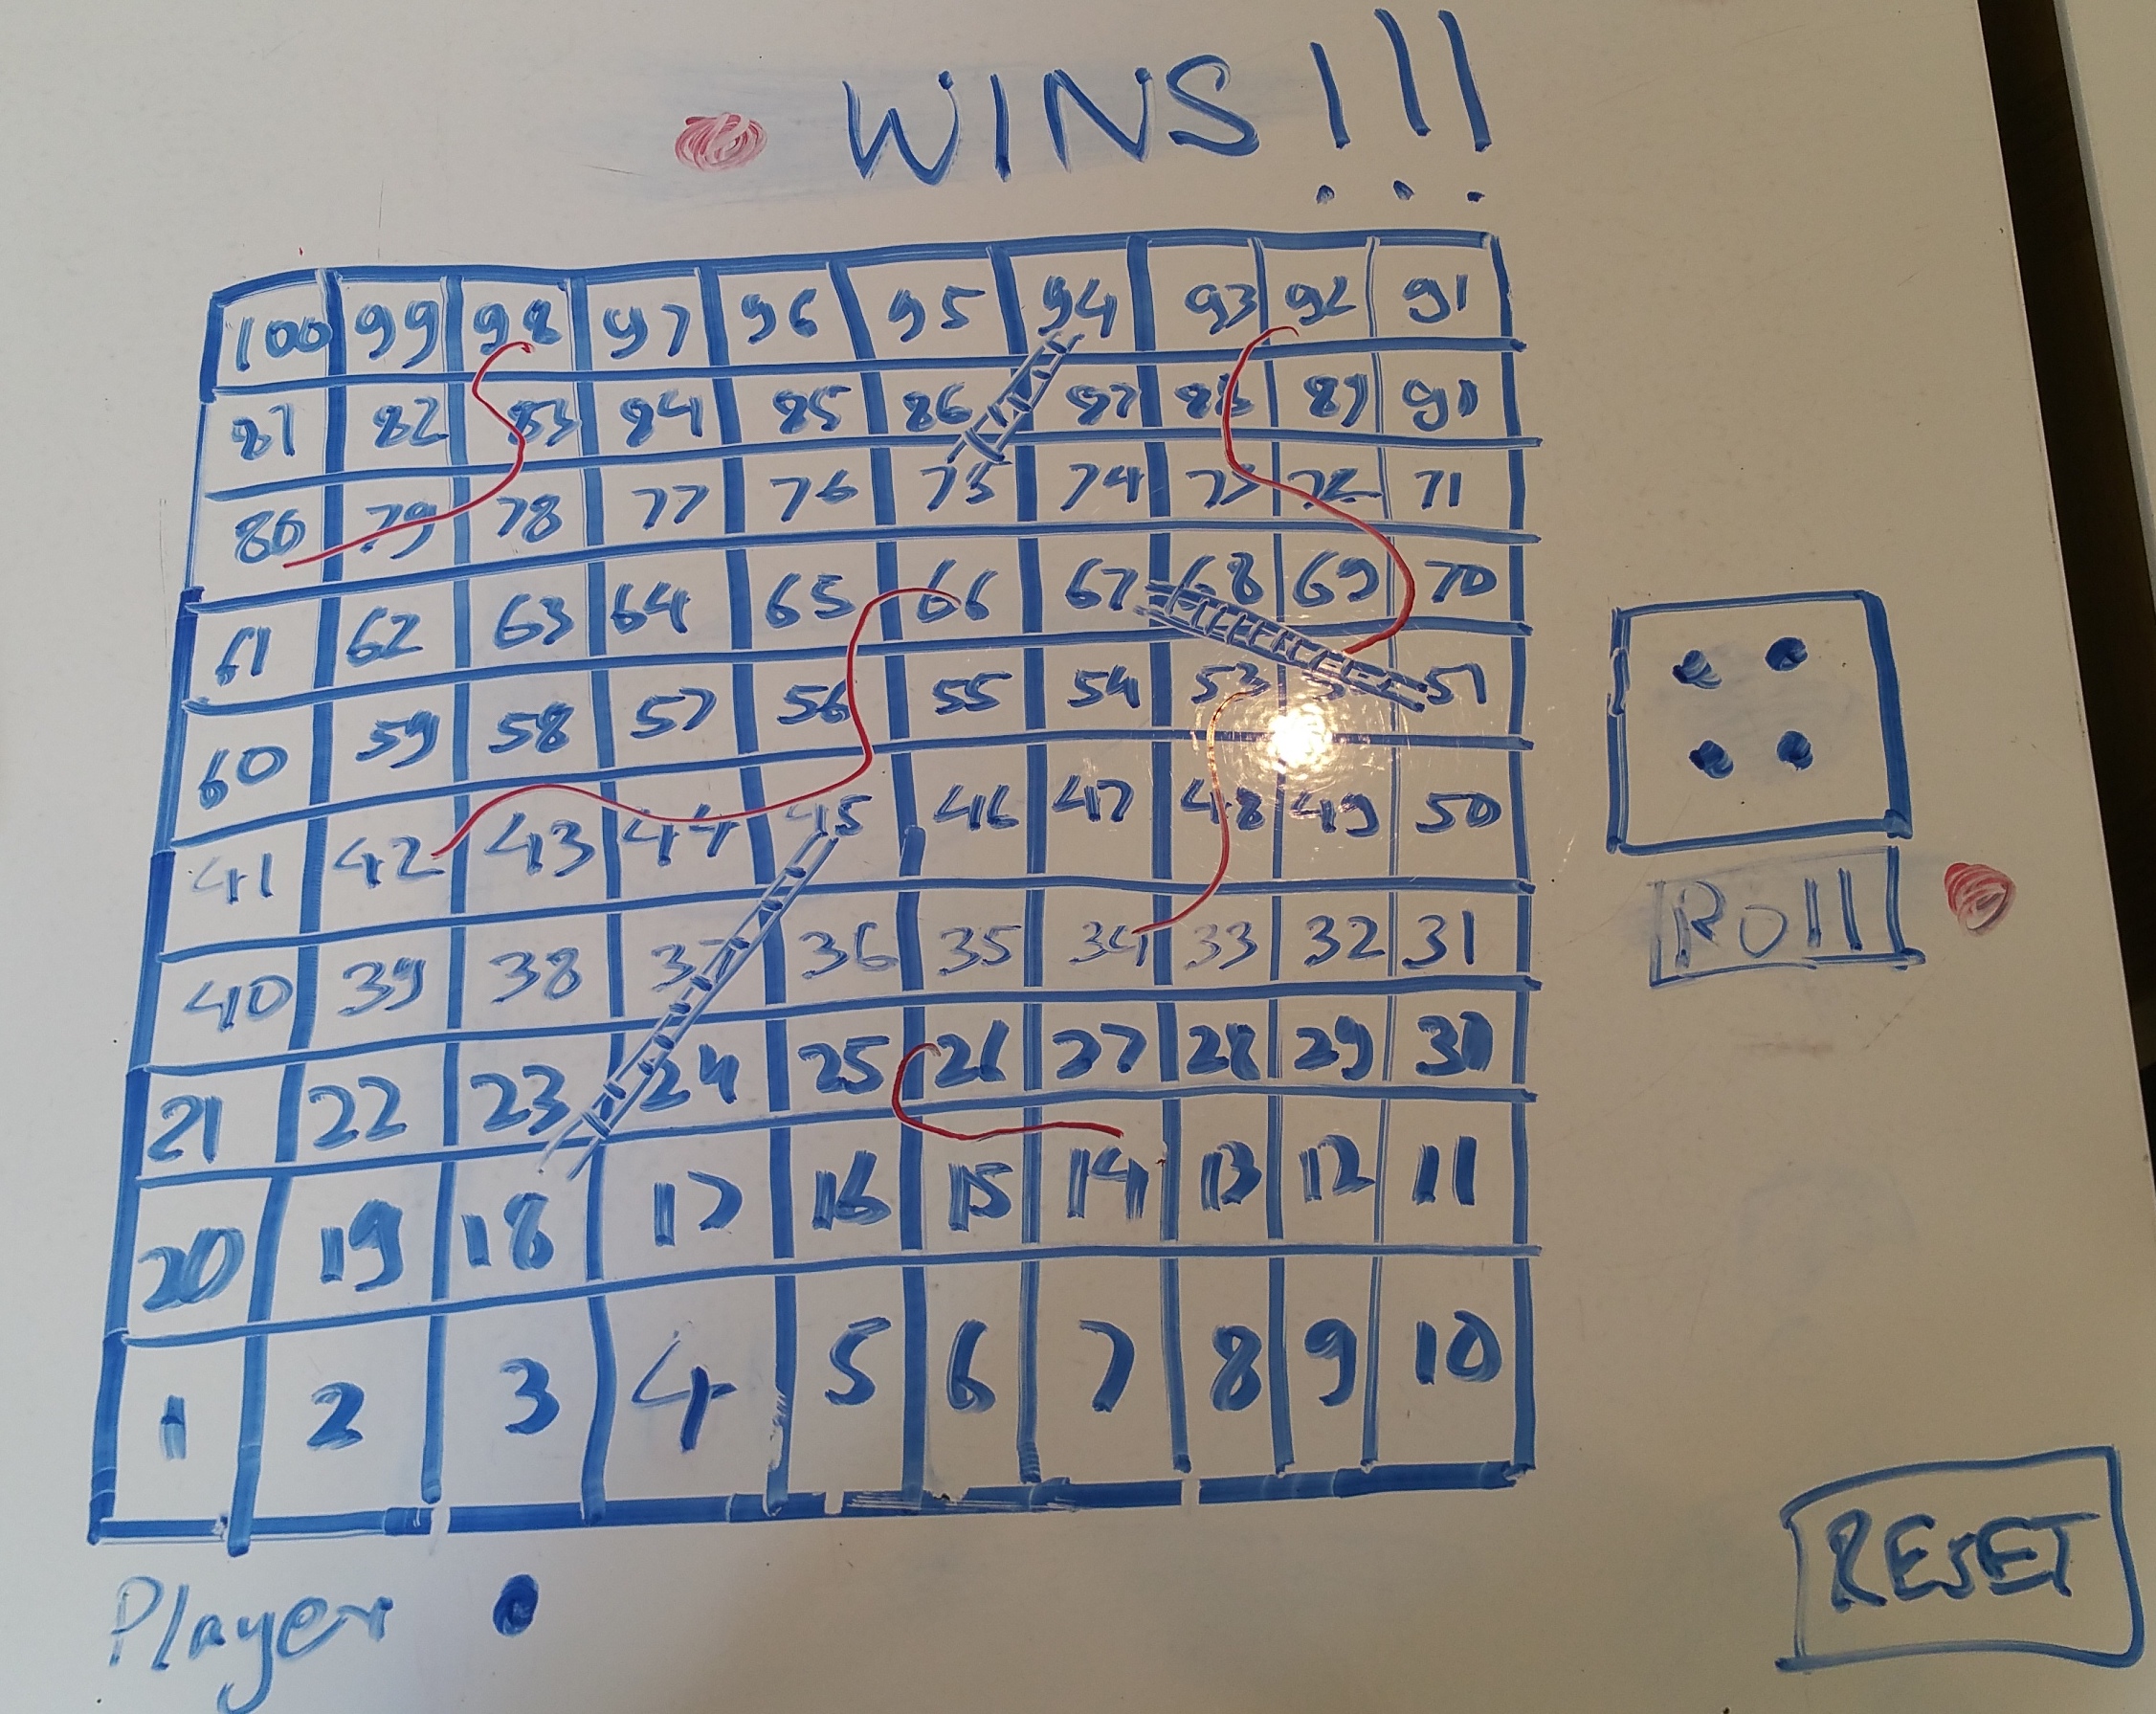 WINS!!!
100 99 98 97 96 95 94 93 92 91
81 82 83 84 85 86 87 88 89 90
80 79 78 77 76 75 74 73 72 71
61 62 63 64 65 66 67 68 69 70
60 59 58 57 56 55 54 53 51
41 42 43 44 45 46 47 48 49 50
40 39 38 37 36 35 34 33 32 31
21 22 23 24 25 26 27 28 29 30
20 19 18 17 16 15 14 13 12 11
1 2 3 4 5 6 7 8 9 10
Roll
RESET
Player